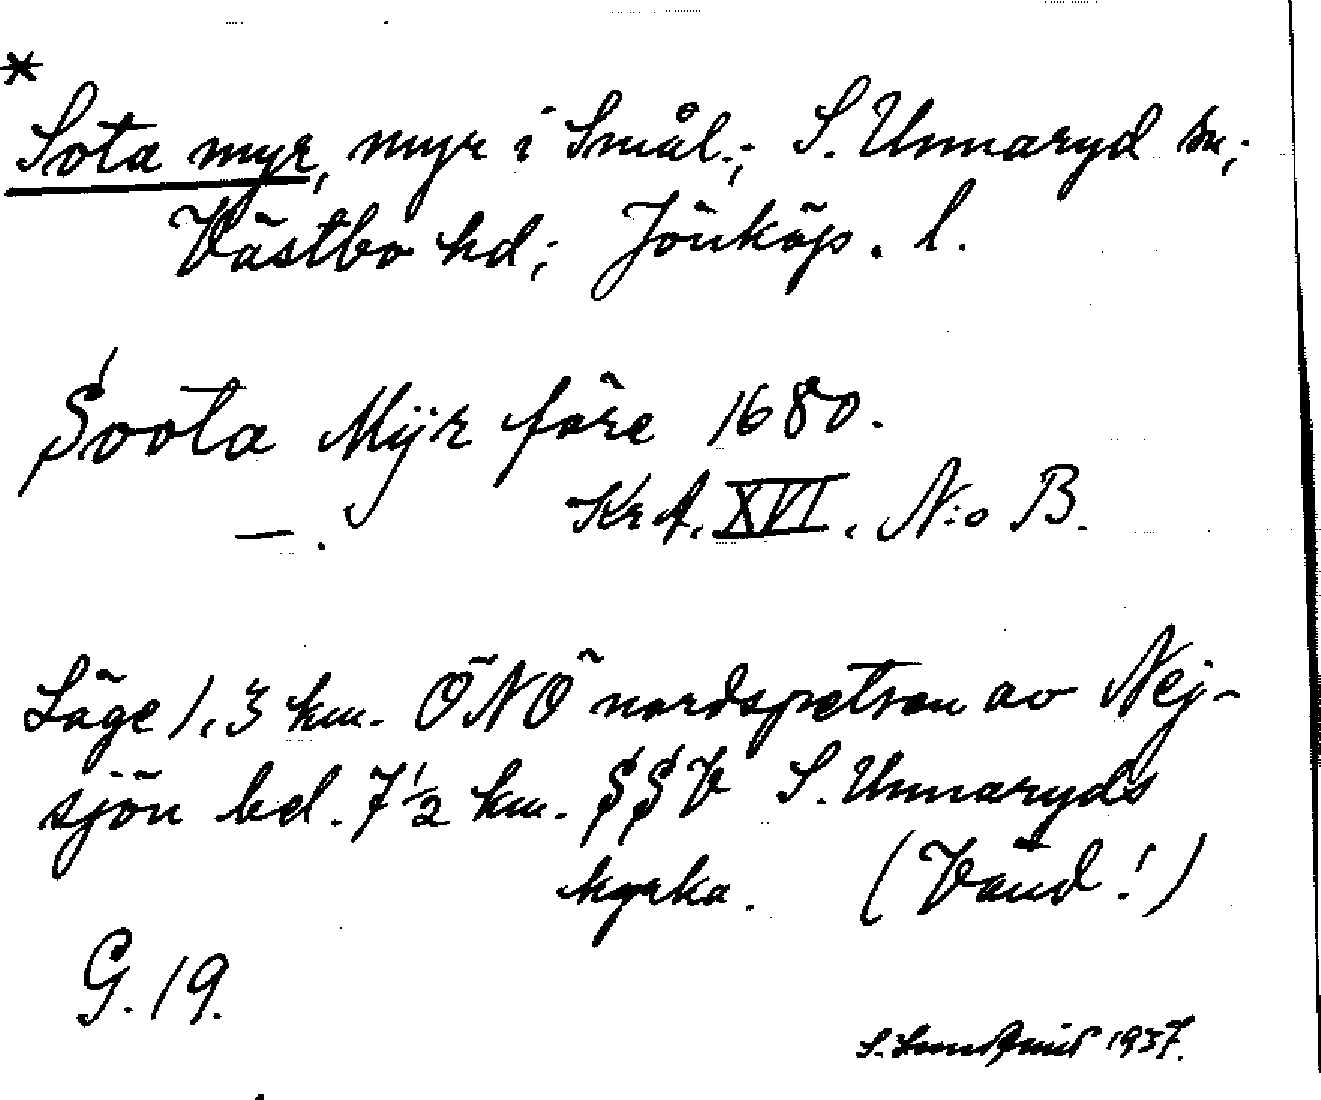 *
Sota myr, myr i Smål.; S. Unnaryd sn;
Västbo hd; Jönköp. l.
Soota Mÿr före 1680.
— . Krt. XVI. N:o B.
Läge 1,3 km. ÖNÖ nordspetsen av Nej-
sjön bel. 7 1/2 km. SSV S. Unnaryds
kyrka. (Vänd!)
G. 19.
1937.